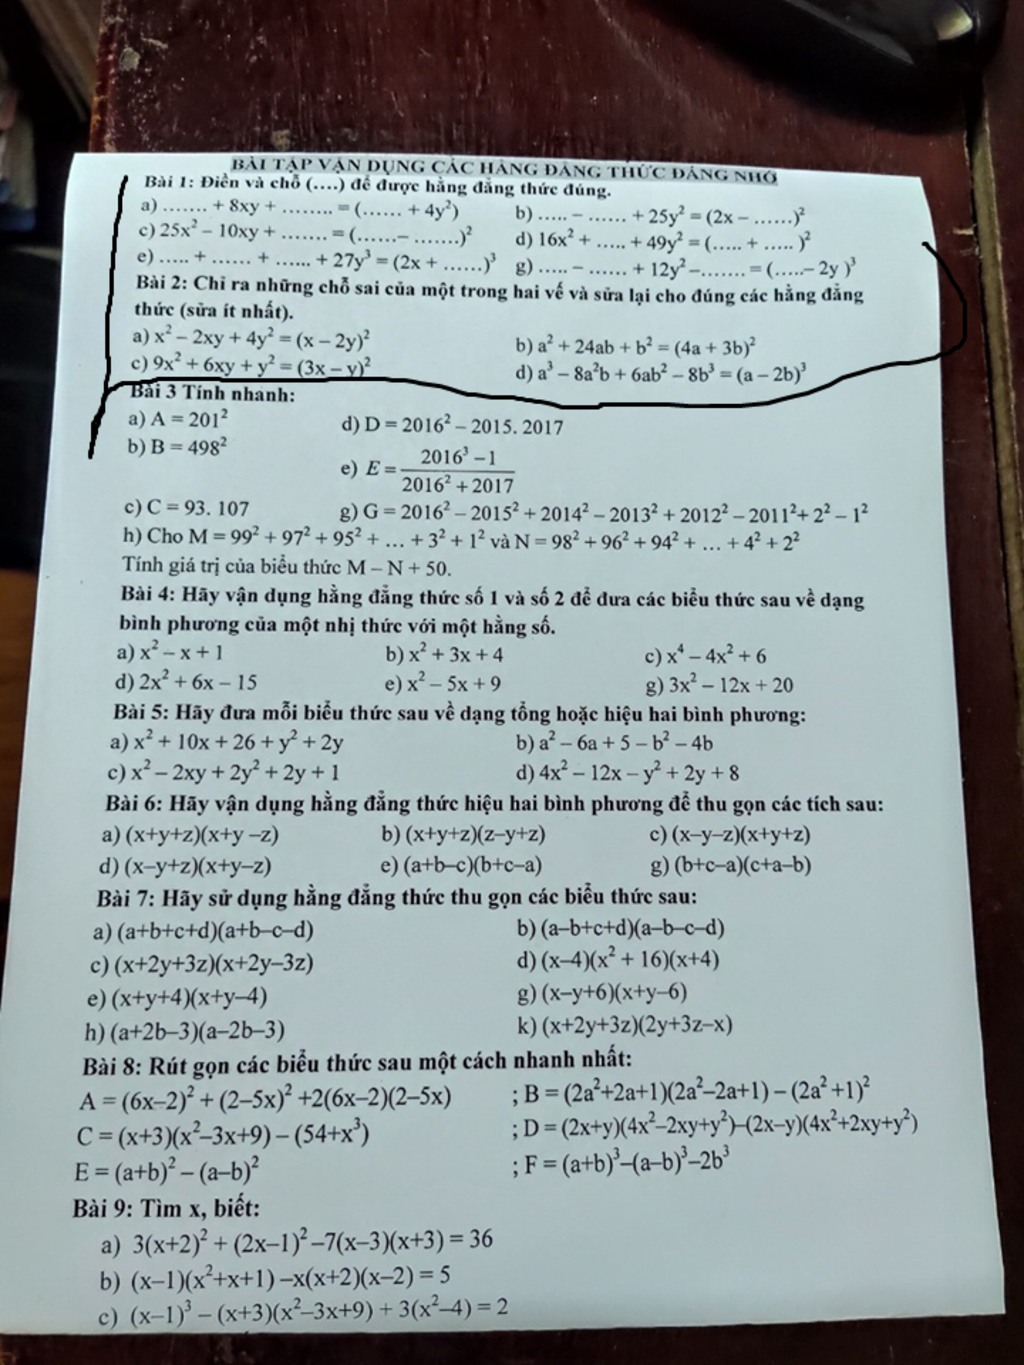 BÀI TẬP VẬN DỤNG CÁC HẰNG ĐẲNG THỨC ĐÁNG NHỚ
Bài 1: Điền và chỗ (....) để được hằng đẳng thức đúng.
a) ....... + 8xy + ........ = (...... + 4y²) b) ..... – ...... + 25y² = (2x – ......)²
c) 25x² – 10xy + ....... = (......– .......)² d) 16x² + ..... + 49y² = (..... + ..... )²
e) ..... + ...... + ...... + 27y³ = (2x + ......)³ g) ..... – ...... + 12y² –....... = (.....– 2y )³
Bài 2: Chỉ ra những chỗ sai của một trong hai vế và sửa lại cho đúng các hằng đẳng
thức (sửa ít nhất).
a) x² – 2xy + 4y² = (x – 2y)² b) a² + 24ab + b² = (4a + 3b)²
c) 9x² + 6xy + y² = (3x – y)² d) a³ – 8a²b + 6ab² – 8b³ = (a – 2b)³
Bài 3 Tính nhanh:
a) A = 201² d) D = 2016² – 2015. 2017
b) B = 498² e) E = (2016³ – 1)/(2016² + 2017)
c) C = 93. 107 g) G = 2016² – 2015² + 2014² – 2013² + 2012² – 2011²+ 2² – 1²
h) Cho M = 99² + 97² + 95² + ... + 3² + 1² và N = 98² + 96² + 94² + ... + 4² + 2²
Tính giá trị của biểu thức M – N + 50.
Bài 4: Hãy vận dụng hằng đẳng thức số 1 và số 2 để đưa các biểu thức sau về dạng
bình phương của một nhị thức với một hằng số.
a) x² – x + 1 b) x² + 3x + 4 c) x⁴ – 4x² + 6
d) 2x² + 6x – 15 e) x² – 5x + 9 g) 3x² – 12x + 20
Bài 5: Hãy đưa mỗi biểu thức sau về dạng tổng hoặc hiệu hai bình phương:
a) x² + 10x + 26 + y² + 2y b) a² – 6a + 5 – b² – 4b
c) x² – 2xy + 2y² + 2y + 1 d) 4x² – 12x – y² + 2y + 8
Bài 6: Hãy vận dụng hằng đẳng thức hiệu hai bình phương để thu gọn các tích sau:
a) (x+y+z)(x+y –z) b) (x+y+z)(z–y+z) c) (x–y–z)(x+y+z)
d) (x–y+z)(x+y–z) e) (a+b–c)(b+c–a) g) (b+c–a)(c+a–b)
Bài 7: Hãy sử dụng hằng đẳng thức thu gọn các biểu thức sau:
a) (a+b+c+d)(a+b–c–d) b) (a–b+c+d)(a–b–c–d)
c) (x+2y+3z)(x+2y–3z) d) (x–4)(x² + 16)(x+4)
e) (x+y+4)(x+y–4) g) (x–y+6)(x+y–6)
h) (a+2b–3)(a–2b–3) k) (x+2y+3z)(2y+3z–x)
Bài 8: Rút gọn các biểu thức sau một cách nhanh nhất:
A = (6x–2)² + (2–5x)² +2(6x–2)(2–5x) ; B = (2a²+2a+1)(2a²–2a+1) – (2a² +1)²
C = (x+3)(x²–3x+9) – (54+x³) ; D = (2x+y)(4x²–2xy+y²)–(2x–y)(4x²+2xy+y²)
E = (a+b)² – (a–b)² ; F = (a+b)³–(a–b)³–2b³
Bài 9: Tìm x, biết:
a) 3(x+2)² + (2x–1)² –7(x–3)(x+3) = 36
b) (x–1)(x²+x+1) –x(x+2)(x–2) = 5
c) (x–1)³ – (x+3)(x²–3x+9) + 3(x²–4) = 2